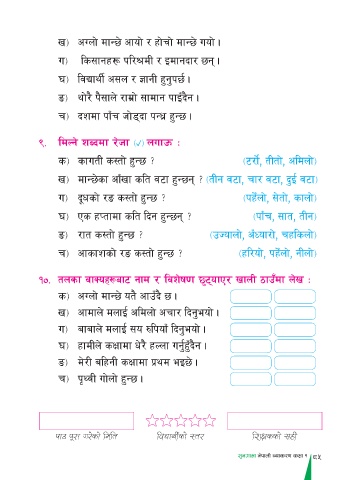 ख) अग्लो मान्छे आयो र होचो मान्छे गयो ।
ग) किसानहरू परिश्रमी र इमानदार छन् ।
घ) विद्यार्थी असल र ज्ञानी हुनुपर्छ ।
ङ) थोरै पैसाले राम्रो सामान पाइँदैन ।
च) दशमा पाँच जोड्दा पन्ध्र हुन्छ ।
९. मिल्ने शब्दमा रेजा (✓) लगाऊ :
क) कागती कस्तो हुन्छ ? (टर्रो, तीतो, अमिलो)
ख) मान्छेका आँखा कति वटा हुन्छन् ? (तीन वटा, चार वटा, दुई वटा)
ग) दूधको रङ कस्तो हुन्छ ? (पहेँलो, सेतो, कालो)
घ) एक हप्तामा कति दिन हुन्छन् ? (पाँच, सात, तीन)
ङ) रात कस्तो हुन्छ ? (उज्यालो, अँध्यारो, चहकिलो)
च) आकाशको रङ कस्तो हुन्छ ? (हरियो, पहेँलो, नीलो)
१०. तलका वाक्यहरूबाट नाम र विशेषण छुट्याएर खाली ठाउँमा लेख :
क) अग्लो मान्छे यतै आउँदै छ ।
ख) आमाले मलाई अमिलो अचार दिनुभयो ।
ग) बाबाले मलाई सय रुपियाँ दिनुभयो ।
घ) हामीले कक्षामा धेरै हल्ला गर्नुहुँदैन ।
ङ) मेरी बहिनी कक्षामा प्रथम भइछे ।
च) पृथ्वी गोलो हुन्छ ।
पाठ पूरा गरेको मिति विद्यार्थीको स्तर शिक्षकको सही
नेपाली व्याकरण कक्षा १ ८५